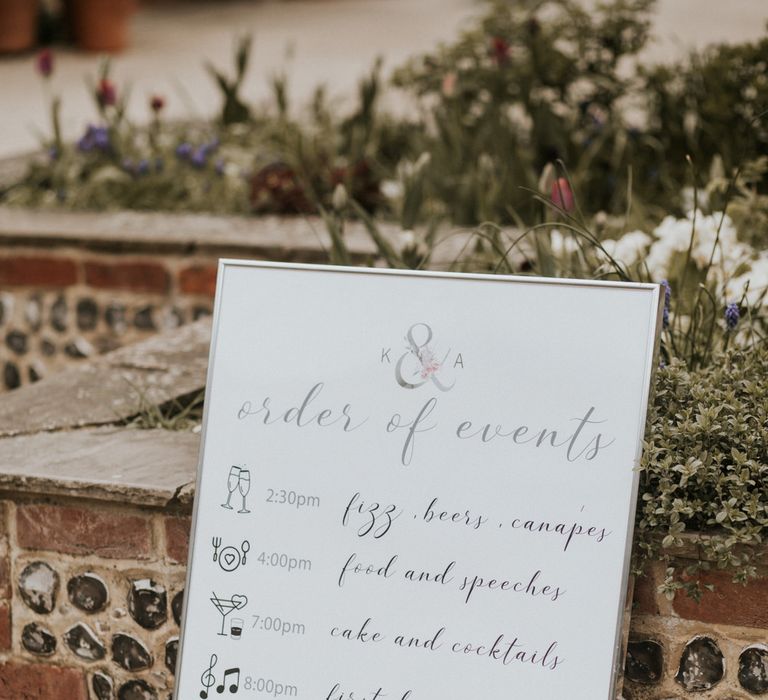 K & A
order of events
2:30pm fizz , beers , canapés
4:00pm food and speeches
7:00pm cake and cocktails
8:00pm first